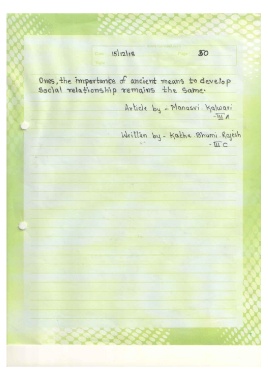 13/12/18 80
Ones, the importance of ancient means to develop
Social relationship remains the same.
Article by - Manasvi Kalwani
- III A
Written by - Katha Bhumi Rajesh
- III C